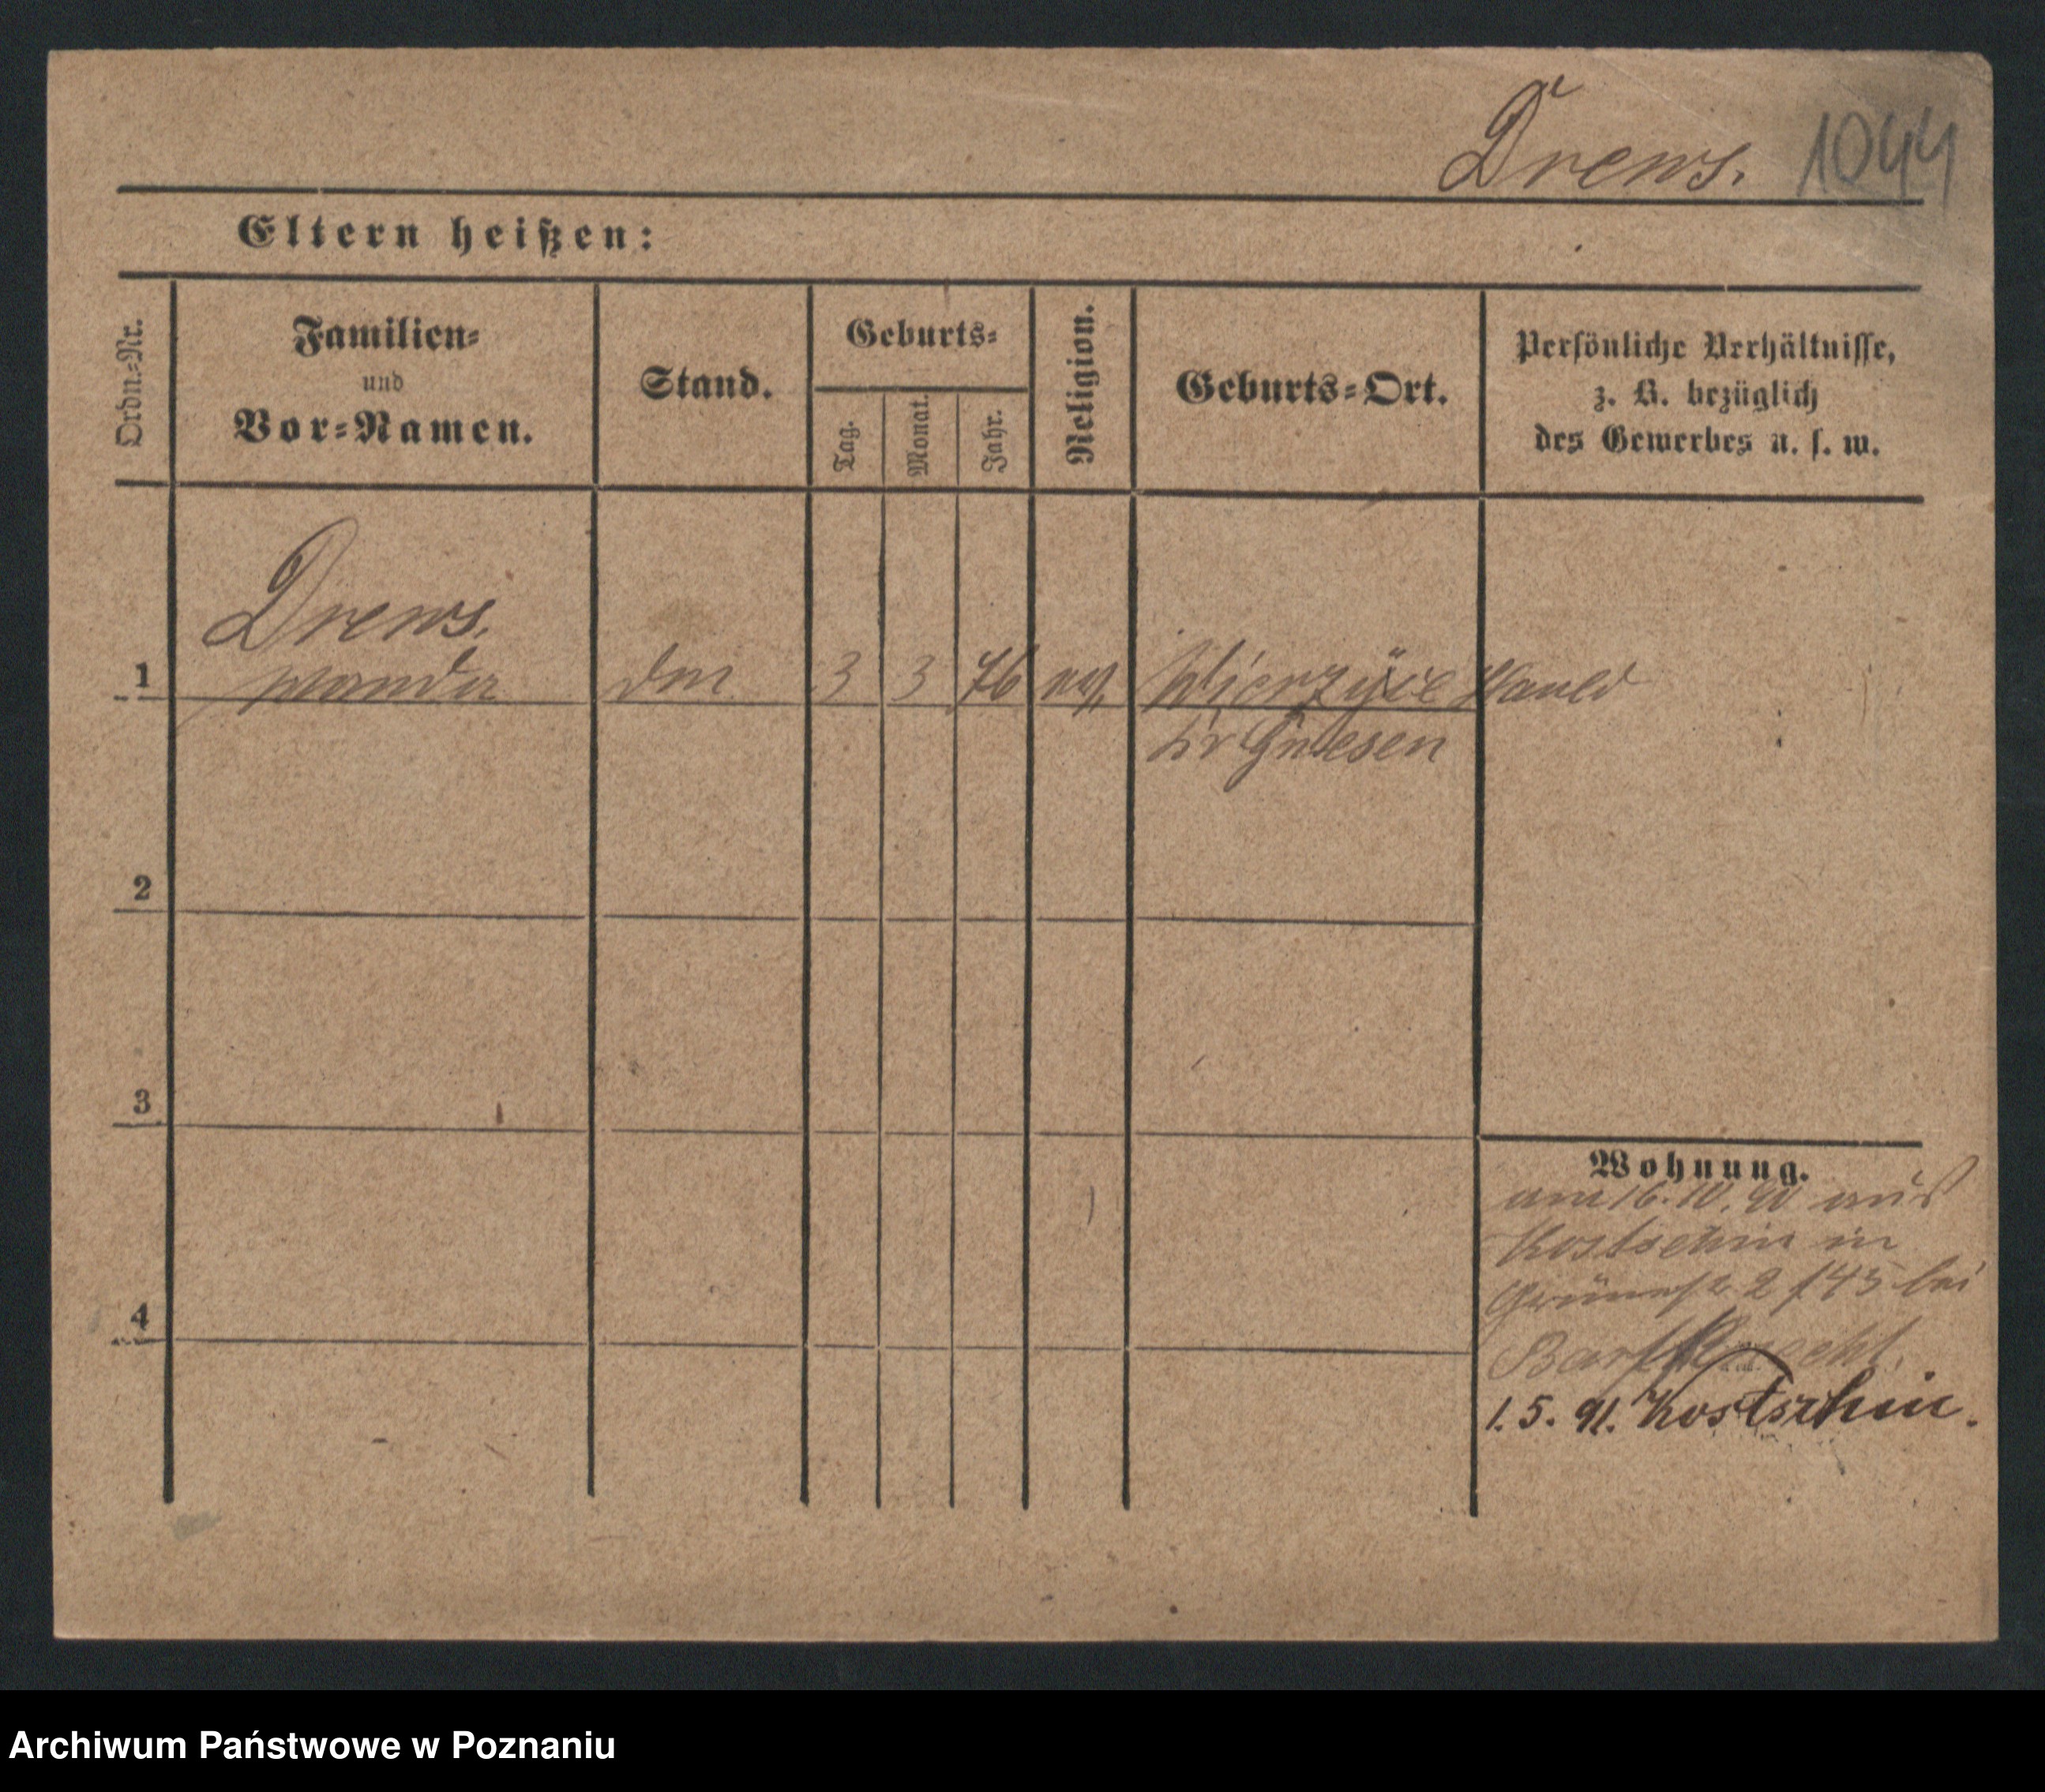 Drews. 1044
Eltern heißen:
Ordn.-Nr.
Familien-
und
Vor-Namen.
Stand.
Geburts-
Tag.
Monat.
Jahr.
Religion.
Geburts-Ort.
Persönliche Verhältnisse,
z. B. bezüglich
des Gewerbes u. s. w.
Drews.
1 Wanda 3 3 76 ev. Wierzyce Hauld
Kr Gnesen
2
3
4
Wohnung.
am 16. 10. 90 aus
Kostschin in
2 bei
1. 5. 91. Kostschin.
Archiwum Państwowe w Poznaniu